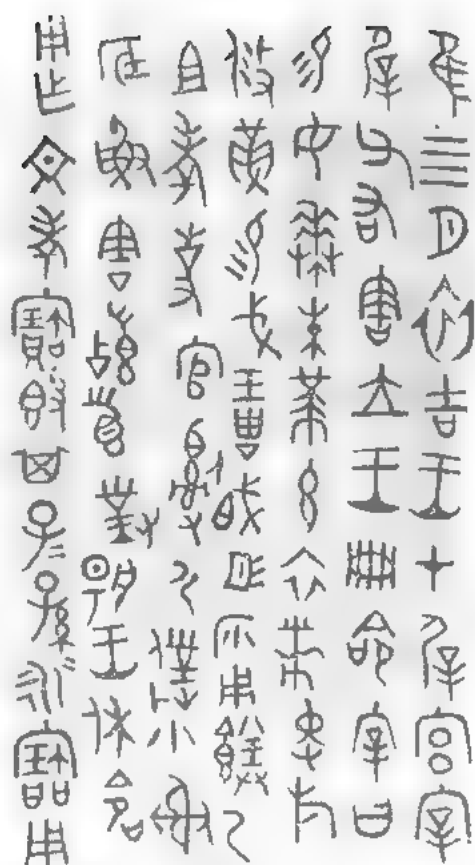 隹四月初吉王才屖宮宰
屖父右害立王冊命宰曰
易女朱黃玄衣黹屯㫃
攸革易戈琱胾彤沙用乃
且考事官𤔲尸僕小射
底魚害𩒨首對揚王休命
用乍文考寶簋其子孫永寶用